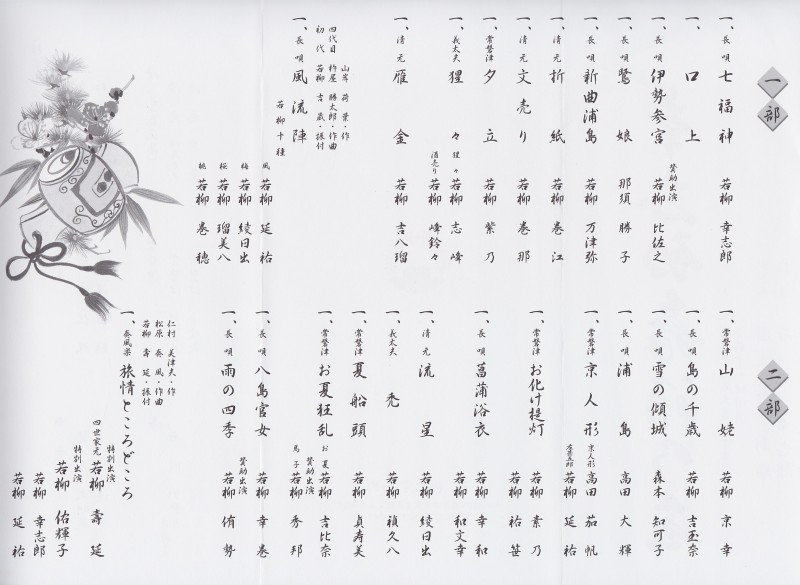 一部
一、長唄 七福神 若柳 幸志郎
一、口上
一、長唄 伊勢参宮 賛助出演 若柳 比佐之
一、長唄 鷺娘 那須 勝子
一、長唄 新曲浦島 若柳 万津弥
一、清元 折紙 若柳 巻江
一、清元 文売り 若柳 巻那
一、常磐津 夕立 若柳 紫乃
一、義太夫 猩々 猩々 若柳 志峰
酒売り 若柳 峰鈴々
一、清元 雁金 若柳 吉八瑠
山岸 荷葉・作
四代目 杵屋 勝太郎・作曲
初代 若柳 吉蔵・振付
一、長唄 風流陣
若柳十種
風 若柳 延祐
梅 若柳 綾日出
桜 若柳 瑠美八
桃 若柳 巻穂
二部
一、常磐津 山姥 若柳 京幸
一、長唄 島の千歳 若柳 吉玉奈
一、長唄 雪の傾城 森本 知可子
一、長唄 浦島 高田 大輝
一、常磐津 京人形 京人形 高田 茄帆
左甚五郎 若柳 延祐
一、常磐津 お化け提灯 若柳 素乃
若柳 祐笹
一、長唄 菖蒲浴衣 若柳 幸和
若柳 和文幸
一、清元 流星 若柳 綾日出
一、義太夫 禿 若柳 禎久八
一、常磐津 夏船頭 若柳 貞寿美
一、常磐津 お夏狂乱 お夏 若柳 吉比奈
賛助出演
馬子 若柳 秀邦
一、長唄 八島官女 若柳 幸巻
一、長唄 雨の四季 賛助出演 若柳 侑勢
仁村 美津夫・作
松原 奏風・作曲
若柳 壽延・振付
一、奏風楽 旅情ところどころ
特別出演
四世家元 若柳 壽延
特別出演
若柳 佑輝子
若柳 幸志郎
若柳 延祐